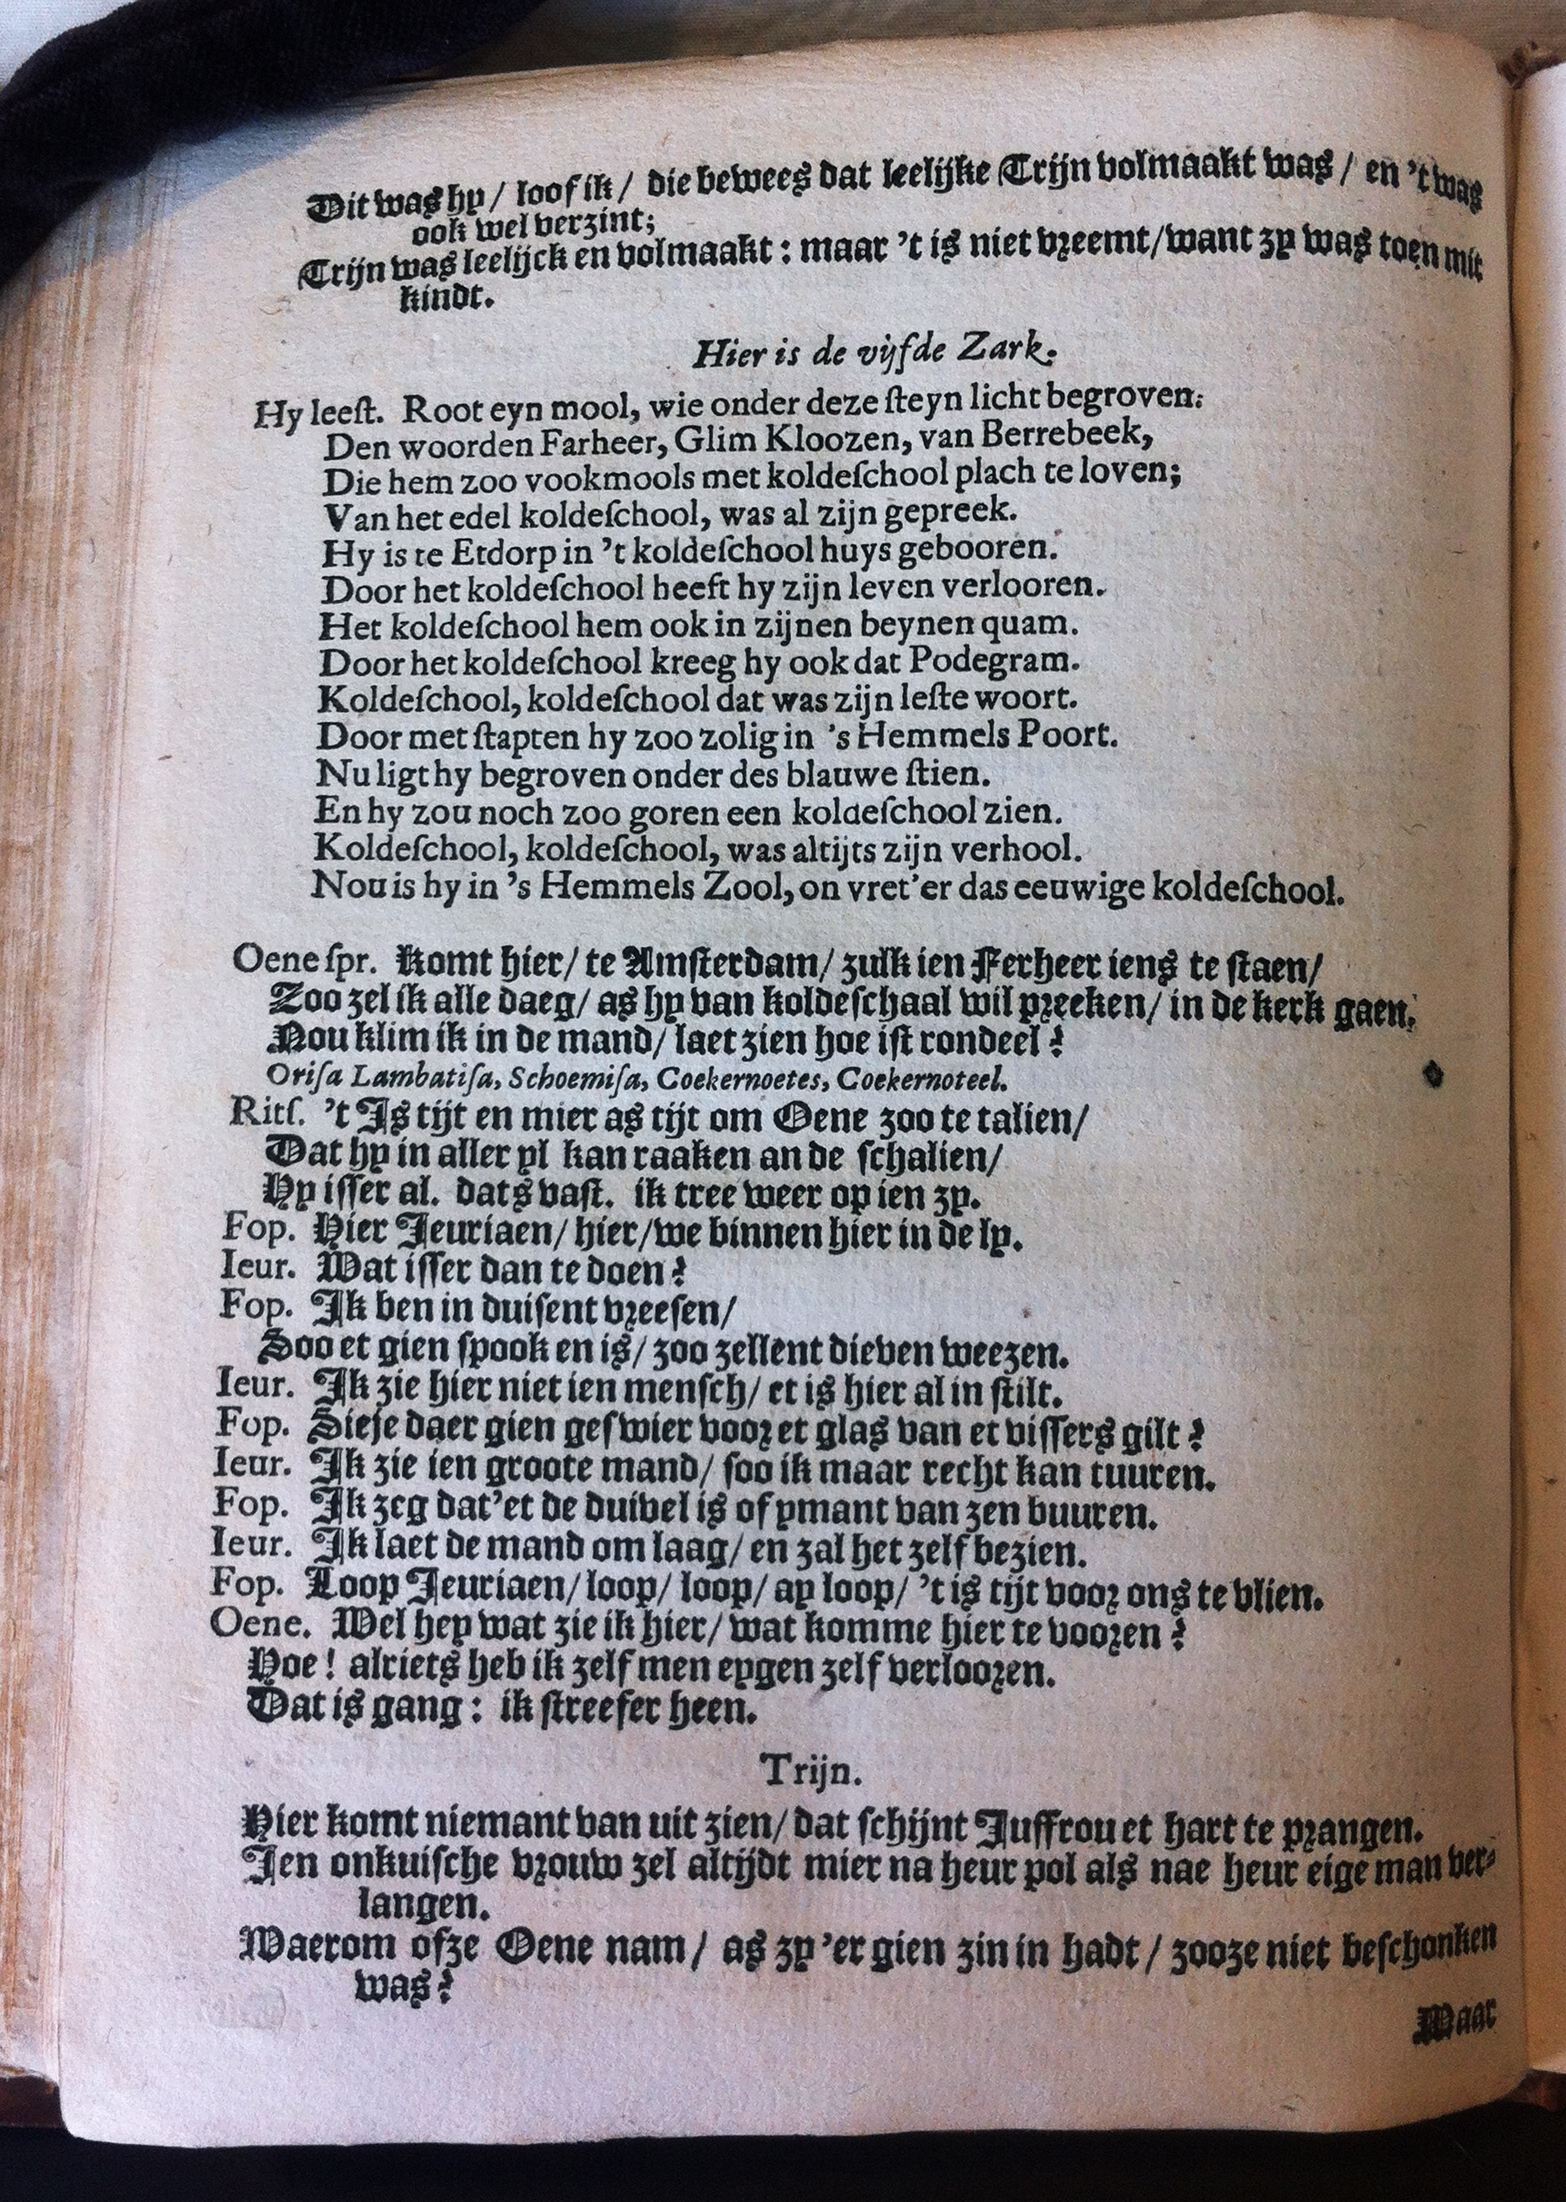 Dit was hy / loof ik / die bewees dat leelijke Trijn volmaakt was / en 't was
ook wel verzint;
Trijn was leelijck en volmaakt : maar 't is niet vreemt / want zy was toen mit
kindt.
Hier is de vijfde Zark.
Hy leeſt. Root eyn mool, wie onder deze ſteyn licht begroven:
Den woorden Farheer, Glim Kloozen, van Berrebeek,
Die hem zoo vookmools met koldeſchool plach te loven;
Van het edel koldeſchool, was al zijn gepreek.
Hy is te Etdorp in 't koldeſchool huys gebooren.
Door het koldeſchool heeft hy zijn leven verlooren.
Het koldeſchool hem ook in zijnen beynen quam.
Door het koldeſchool kreeg hy ook dat Podegram.
Koldeſchool, koldeſchool dat was zijn leſte woort.
Door met ſtapten hy zoo zolig in 's Hemmels Poort.
Nu ligt hy begroven onder des blauwe ſtien.
En hy zou noch zoo goren een koldeſchool zien.
Koldeſchool, koldeſchool, was altijts zijn verhool.
Nou is hy in 's Hemmels Zool, on vret'er das eeuwige koldeſchool.
Oene ſpr. Komt hier / te Amſterdam / zulk ien Ferheer iens te ſtaen /
Zoo zel ik alle daeg / as hy van koldeſchaal wil preeken / in de kerk gaen.
Nou klim ik in de mand / laet zien hoe iſt rondeel?
Oriſa Lambatiſa, Schoemiſa, Coekernoetes, Coekernoteel.
Ritſ. 't Is tijt en mier as tijt om Oene zoo te talien /
Dat hy in aller yl kan raaken an de ſchalien /
Hy iſſer al. dats vaſt. ik tree weer op ien zy.
Fop. Hier Jeuriaen / hier / we binnen hier in de ly.
Ieur. Wat iſſer dan te doen?
Fop. Ik ben in duiſent vreeſen /
Soo et gien ſpook en is / zoo zellent dieven weezen.
Ieur. Ik zie hier niet ien menſch / et is hier al in ſtilt.
Fop. Sieje daer gien geſwier voor et glas van et viſſers gilt?
Ieur. Ik zie ien groote mand / ſoo ik maar recht kan tuuren.
Fop. Ik zeg dat'et de duivel is of ymant van zen buuren.
Ieur. Ik laet de mand om laag / en zal het zelf bezien.
Fop. Loop Jeuriaen / loop / loop / ay loop / 't is tijt voor ons te vlien.
Oene. Wel hey wat zie ik hier / wat komme hier te vooren?
Hoe! alriets heb ik zelf men eygen zelf verlooren.
Dat is gang : ik ſtreefer heen.
Trijn.
Hier komt niemant van uit zien / dat ſchijnt Juffrou et hart te prangen.
Ien onkuiſche vrouw zel altijdt mier na heur pol als nae heur eige man ver-
langen.
Waerom ofze Oene nam / as zy 'er gien zin in hadt / zooze niet beſchonken
was?
Maar